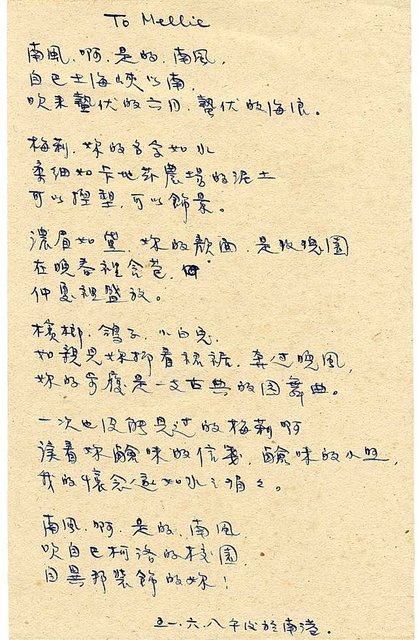 To Mellie
南風，啊，是的，南風，
自巴士海峽以南，
吹來蟄伏的六月，蟄伏的海浪。
梅莉，妳的名字如水
柔細如卡地莎農場的泥土
可以捏塑，可以飾景。
濃眉如黛，妳的顏面，是玫瑰園
在晚春裡含苞，
仲夏裡盛放。
檳榔，鴿子，小白兔，
如親見妳挪著裙裾，奔過晚風，
妳的步履是一支古典的圓舞曲。
一次也沒能見过的梅莉啊
讀着妳鹹味的信箋，鹹味的小照，
我的懷念遂如水之涓々。
南風，啊，是的，南風
吹自巴柯洛的校園
因異邦裝飾的妳！
五一．六．八午后於南港．